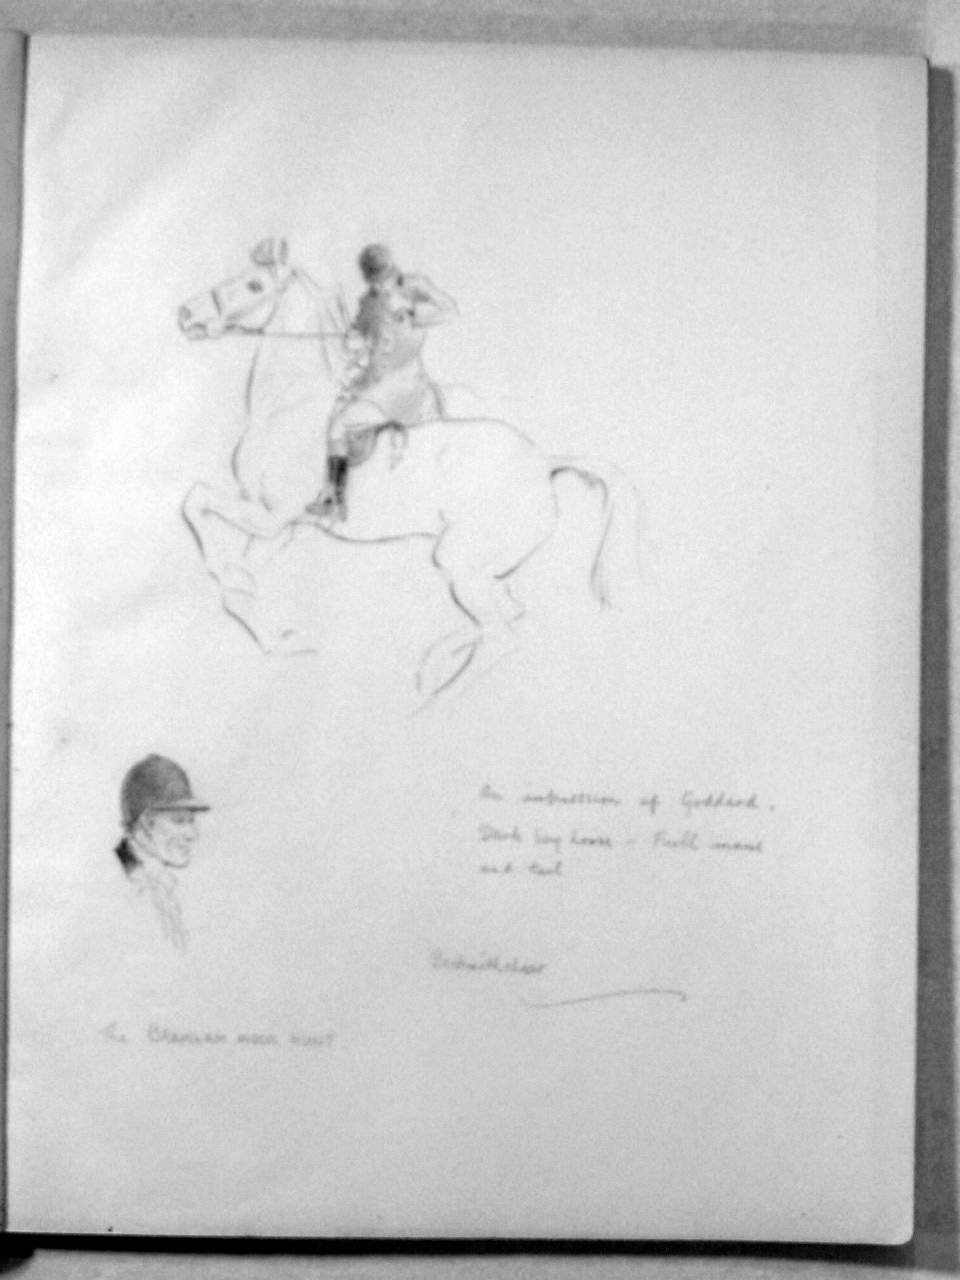 An impression of Goddard.
Dark bay horse - Full mane
and tail
The Bramham Moor HUNT